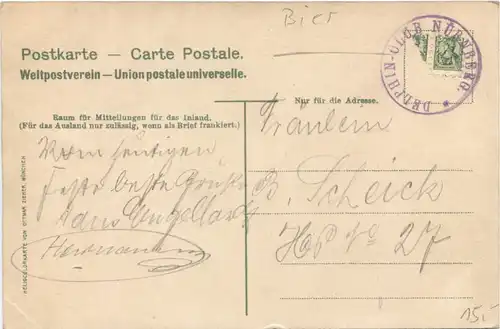 Bier
Postkarte — Carte Postale.
Weltpostverein — Union postale universelle.
DELPHIN-CLUB NÜRNBERG. *
Raum für Mitteilungen für das Inland.
(Für das Ausland nur zulässig, wenn als Brief frankiert.)
Nur für die Adresse.
Fräulein
Vom heutigen
Feste beste Grüsse
B. Scheick
Hans
Hermann
27
RELIEFKARTE VON OTTMAR ZIEHER, MÜNCHEN
15,-